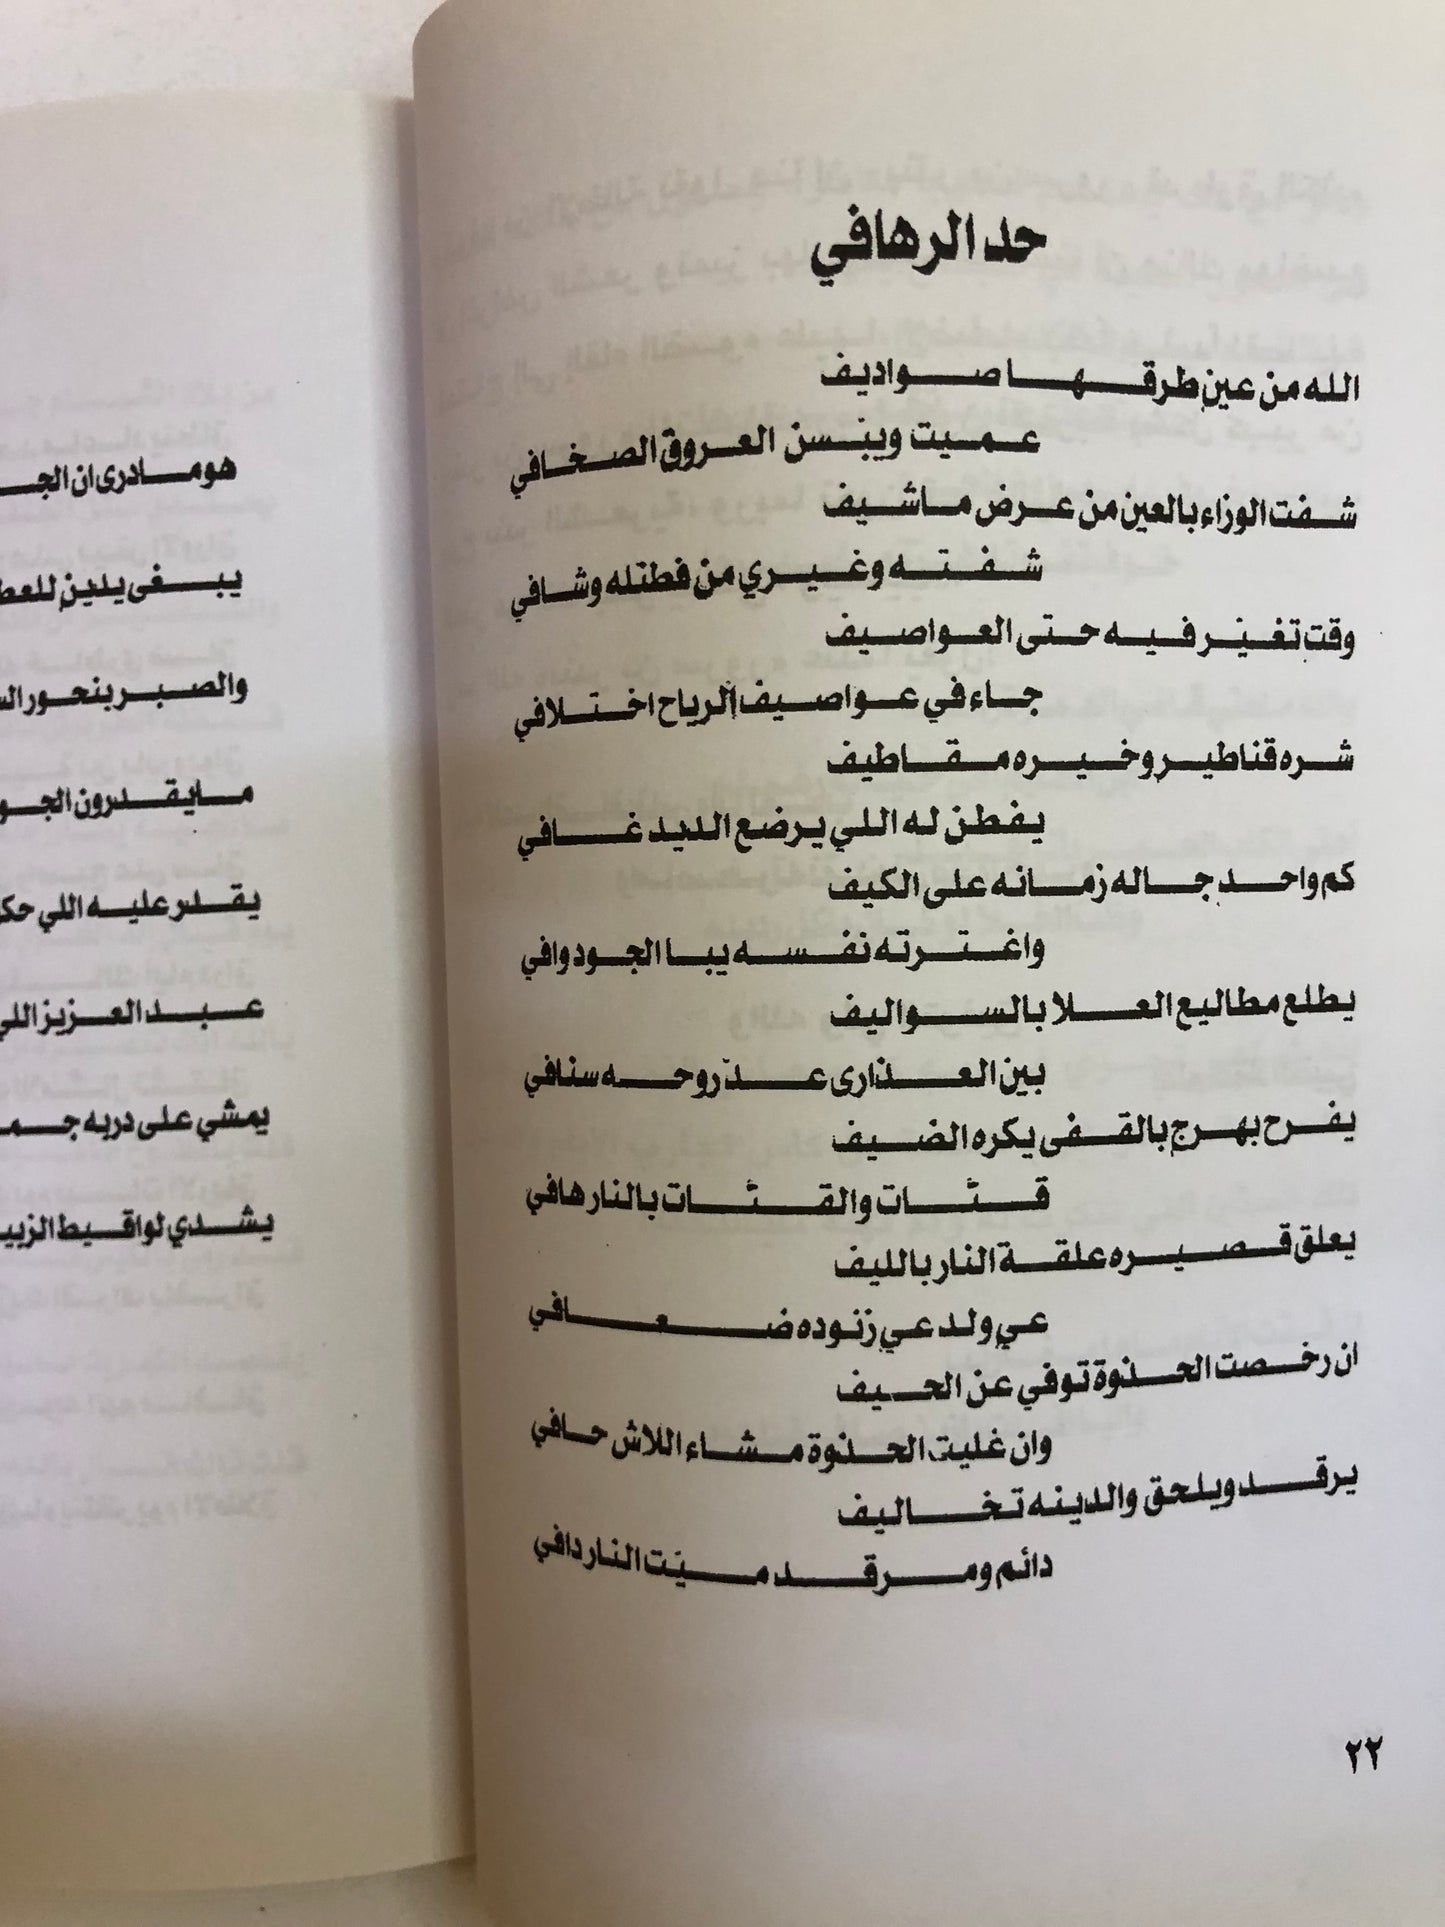 حد الرهافي
الله من عينٍ طرقها صواديف
عميت ويبّسن العروق الصخافي
شفت الوزاء بالعين من عرض ماشيف
شفته وغيري من فطتله وشافي
وقت تغيّر فيه حتى العواصيف
جاء في عواصيف الرياح اختلافي
شره قناطير وخيره مقاطيف
يفطن له اللي يرضع الديد غافي
كم واحدٍ جاله زمانه على الكيف
واغترته نفسه يبا الجود وافي
يطلع مطاليع العلا بالسواليف
بين العذارى عدّ روحه سنافي
يفرح بهرجٍ بالقفى يكره الضيف
قتّات والقتّات بالنار هافي
يعلق قصيره علقة النار بالليف
عيٍ ولد عيٍ زنوده ضعافي
ان رخصت الحذوة توفي عن الحيف
وان غليت الحذوة مشاء اللاش حافي
يرقد ويلحق والدينه تخاليف
دائم ومرقد ميّت النار دافي
٢٢
هو مادرى ان الجـ
يبغى يلدينٍ للعطـ
والصبر بنحور السـ
مايقدرون الجو
يقدر عليه اللي حكر
عبد العزيز اللي
يمشي على دربه جمـ
يشدي لواقيط الزبيـ